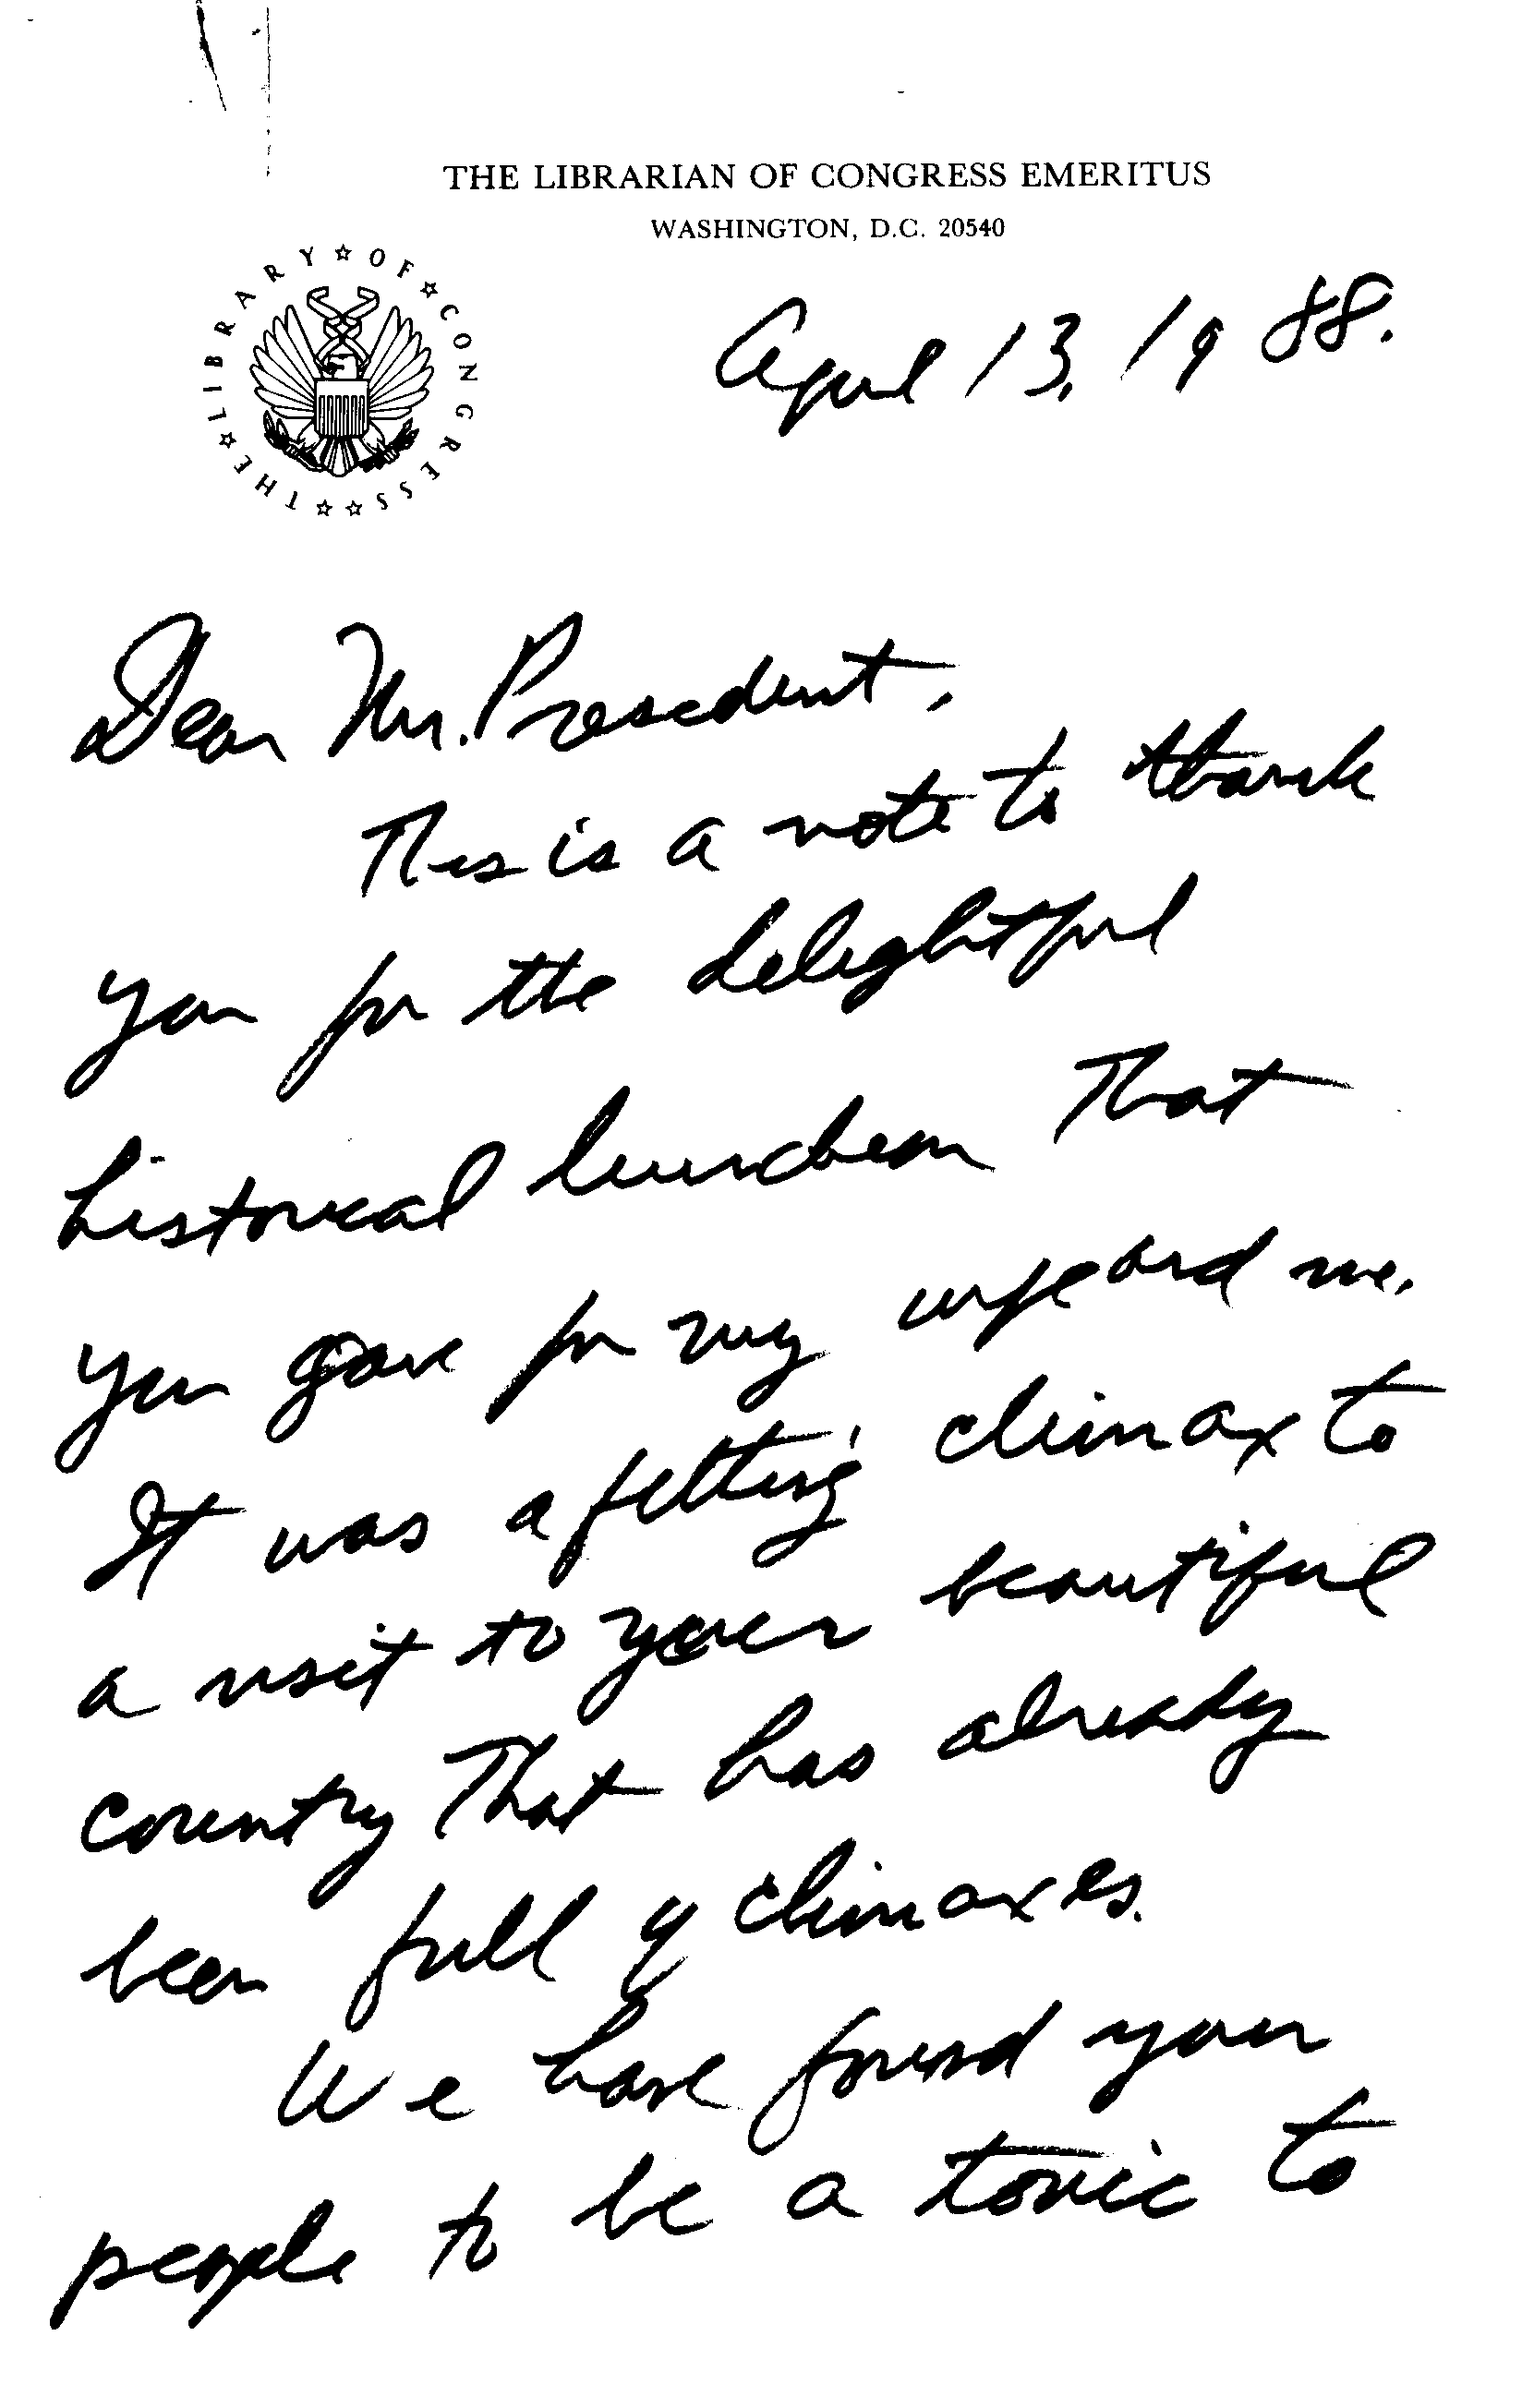 THE LIBRARIAN OF CONGRESS EMERITUS
WASHINGTON, D.C. 20540
THE LIBRARY OF CONGRESS
April 13, 1988.
Dear Mr. President,
This is a note to thank
you for the delightful
historical luncheon that
you gave for my wife and me.
It was a fitting climax to
a visit to your beautiful
country that has already
been full of climaxes.
We have found your
people to be a tonic to